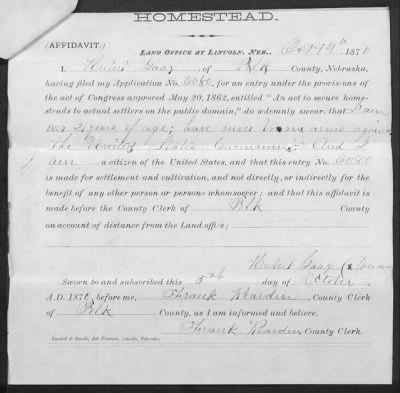 HOMESTEAD.
(AFFIDAVIT.)
LAND OFFICE AT LINCOLN, NEB., Oct 14th 1870
I, Hubert Gaag, of Polk County, Nebraska,
having filed my Application No. 6080, for an entry under the provisions of
the act of Congress approved May 20, 1862, entitled "An act to secure home-
steads to actual settlers on the public domain," do solemnly swear, that I am
over 21 years of age, have never borne arms against
the United States Government, And I
am a citizen of the United States, and that this entry No. 6080
is made for settlement and cultivation, and not directly, or indirectly for the
benefit of any other person or persons whomsoever; and that this affidavit is
made before the County Clerk of Polk County
on account of distance from the Land office;
Hubert Gaag (x
Sworn to and subscribed this 5th day of October
A.D. 1870, before me, Frank Reardin, County Clerk
of Polk County, as I am informed and believe.
Frank Reardin County Clerk.
Job Printers, Lincoln, Nebraska.